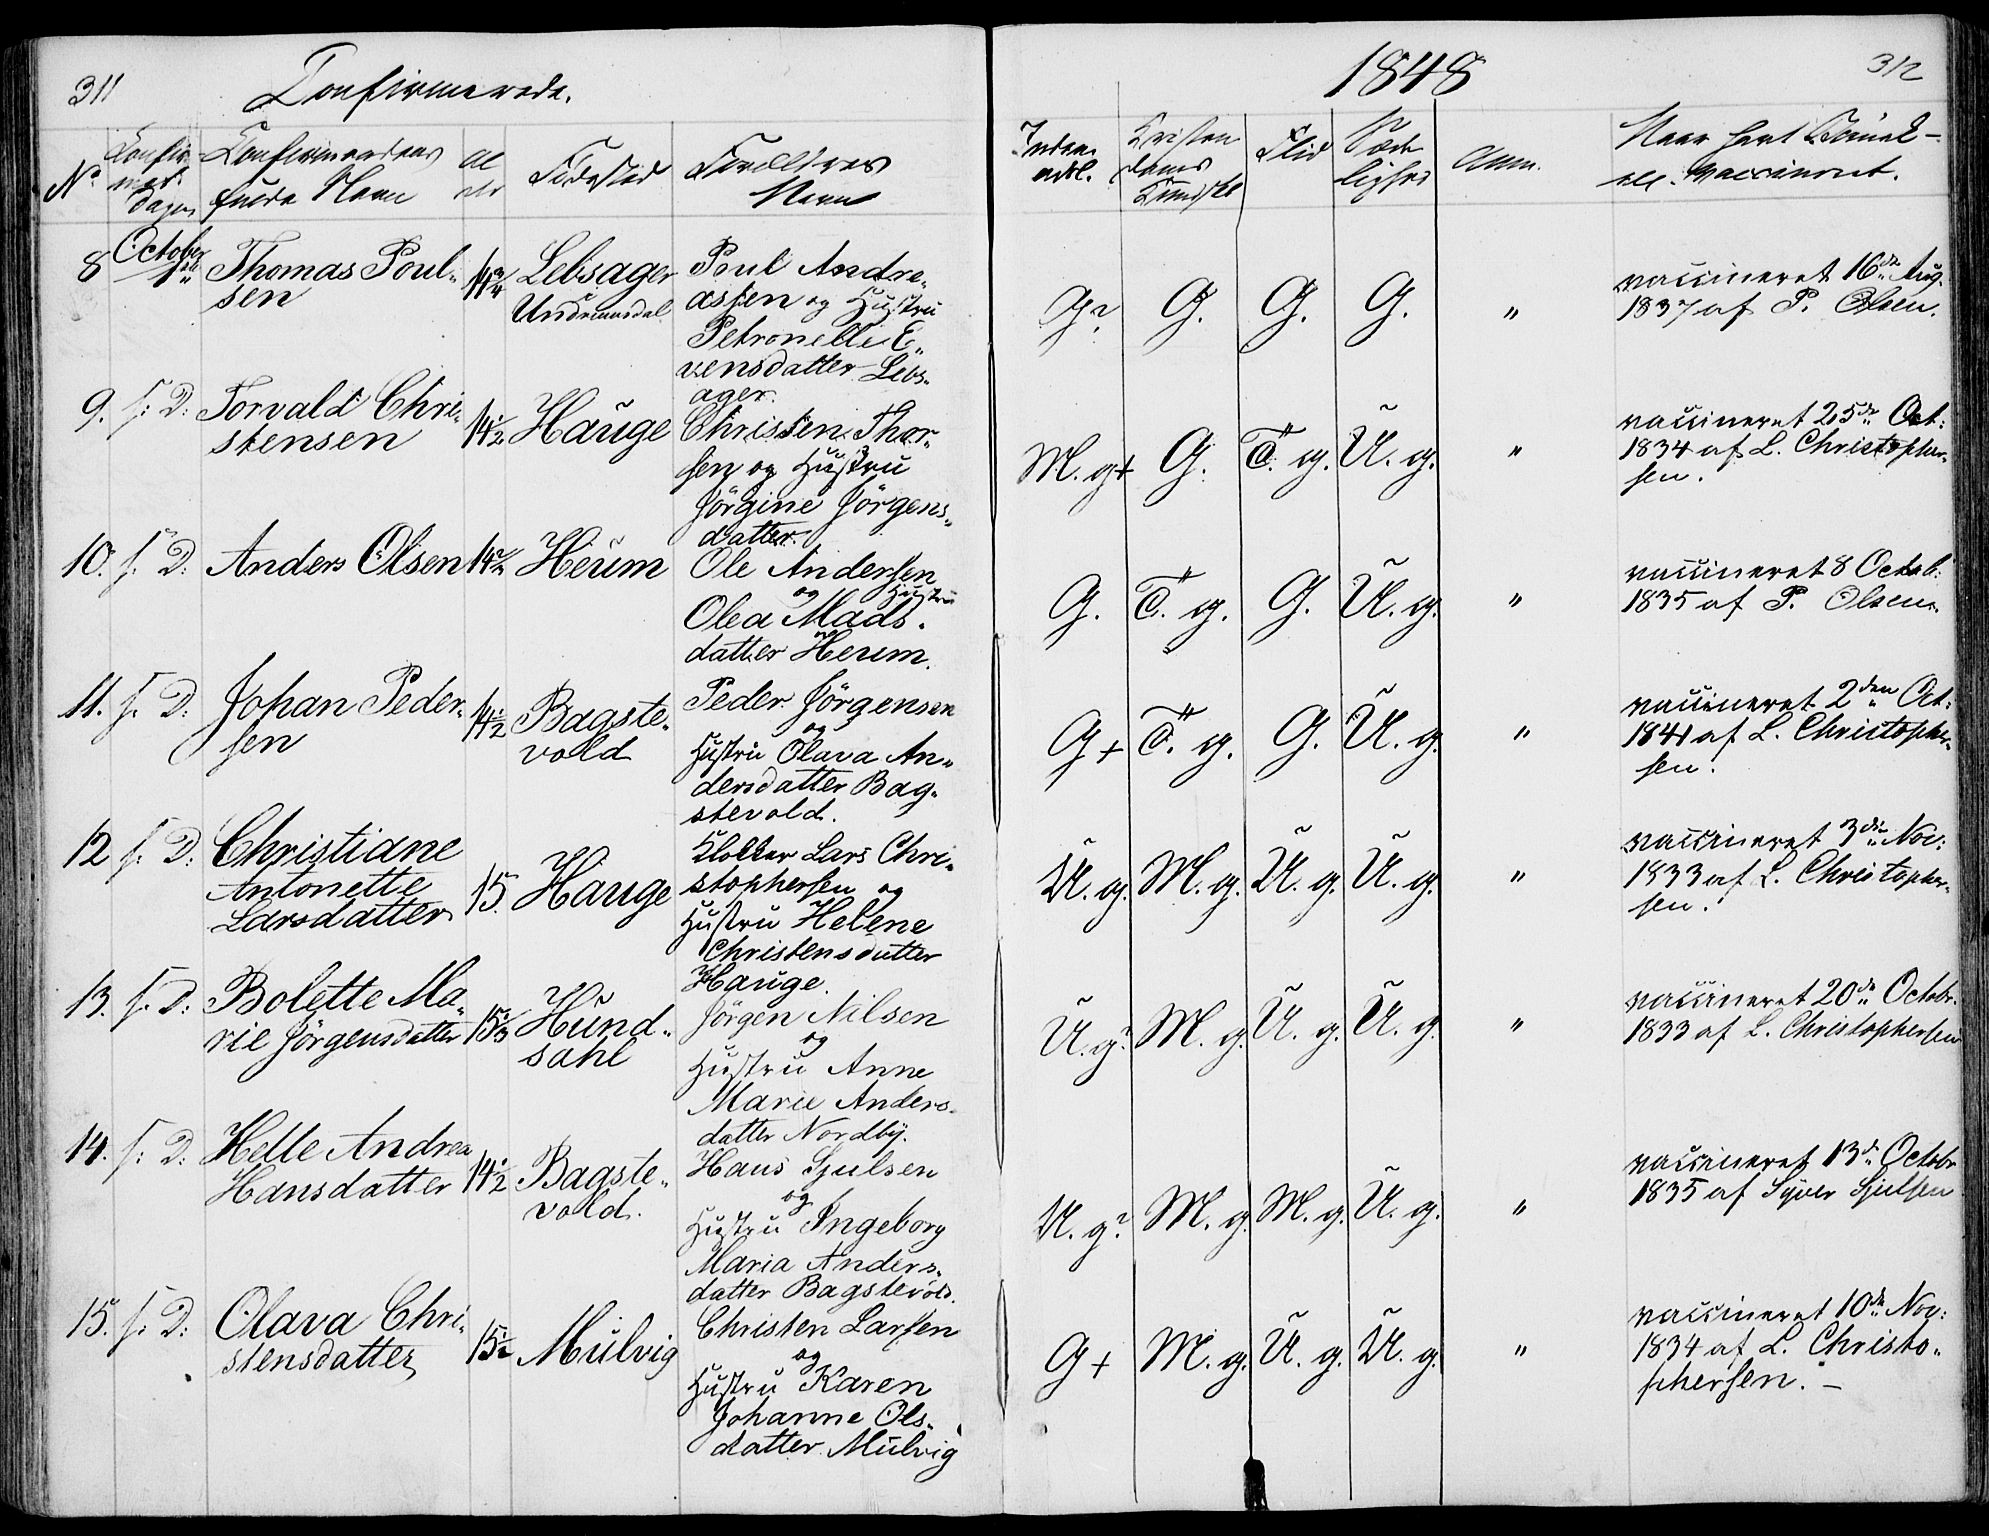 311
Confirmerede.
1848
312
No.
Confir-
mat.
Dagen
Confirmandens
fulde Navn
Al
der
Fødested
Forældres
Navn
Kristen
doms
Kundsk
Flid
Sæde
lighed
Anm.
Naar havt
ell. vaccineret.
8
October
1ste
Thomas Poul-
sen
14 3/4
Lebsager
Undrumsdal
Poul Andre-
assen og Hustru
Petronelle E-
vensdatter Lebs-
ager.
G?
G.
G.
G.
"
vaccineret 16de Aug.
1837 af P. Olsen.
9.
s: D:
Torvald Chri-
stensen
14 1/2
Hauge
Christen Thor-
sen og Hustru
Jörgine Jörgens-
datter.
M. g+
G.
T. g.
U. g.
"
vaccineret 25de Oct:
1834 af L. Christopher-
sen.
10.
s. D:
Anders Olsen
14 1/2
Heum
Ole Andersen
og Hustru
Olea Mads-
datter Heum.
G.
T. g.
G.
U. g.
"
vaccineret 8 Octob:
1835 af P. Olsen.
11.
s. D:
Johan Peder-
sen
14 1/2
Bagste-
vold
Peder Jörgensen
og
Hustru Olava An-
dersdatter Bag-
stevold.
G+
T. g.
G.
U. g.
"
vaccineret 2den Oct:
1841 af L. Christopher-
sen.
12
s. D:
Christiane
Antonette
Larsdatter
15.
Hauge
Klokker Lars Chri-
stophersen og
Hustru Helene
Christensdatter
Hauge.
U. g.
M. g.
U. g.
U. g.
"
vaccineret 3die Nov:
1833 af L. Christopher-
sen.
13.
s. D:
Bolette Ma-
rie Jörgensdatter
15 1/3
Hund-
sahl
Jörgen Nilsen
og
Hustru Anne
Marie Anders-
datter Nordby.
U. g?
M. g.
U. g.
U. g.
"
vaccineret 20de Octobr.
1833 af L. Christophersen
14.
s: D:
Helle Andrea
Hansdatter
14 1/2
Bagste-
vold.
Hans Sjulsen
og
Hustru Ingeborg
Maria Anders-
datter Bagstevold.
U. g?
M. g.
M. g.
U. g.
"
vaccineret 13de Octobr
1835 af Syver Sjulsen
15.
s. D:
Olava Chri-
stensdatter
15 1/2
Mulvig
Christen Larsen
og
Hustru Karen
Johanne Ols-
datter Mulvig
G+
M. g.
U. g.
U. g.
"
vaccineret 10de Nov:
1834 af L. Christo-
phersen. -